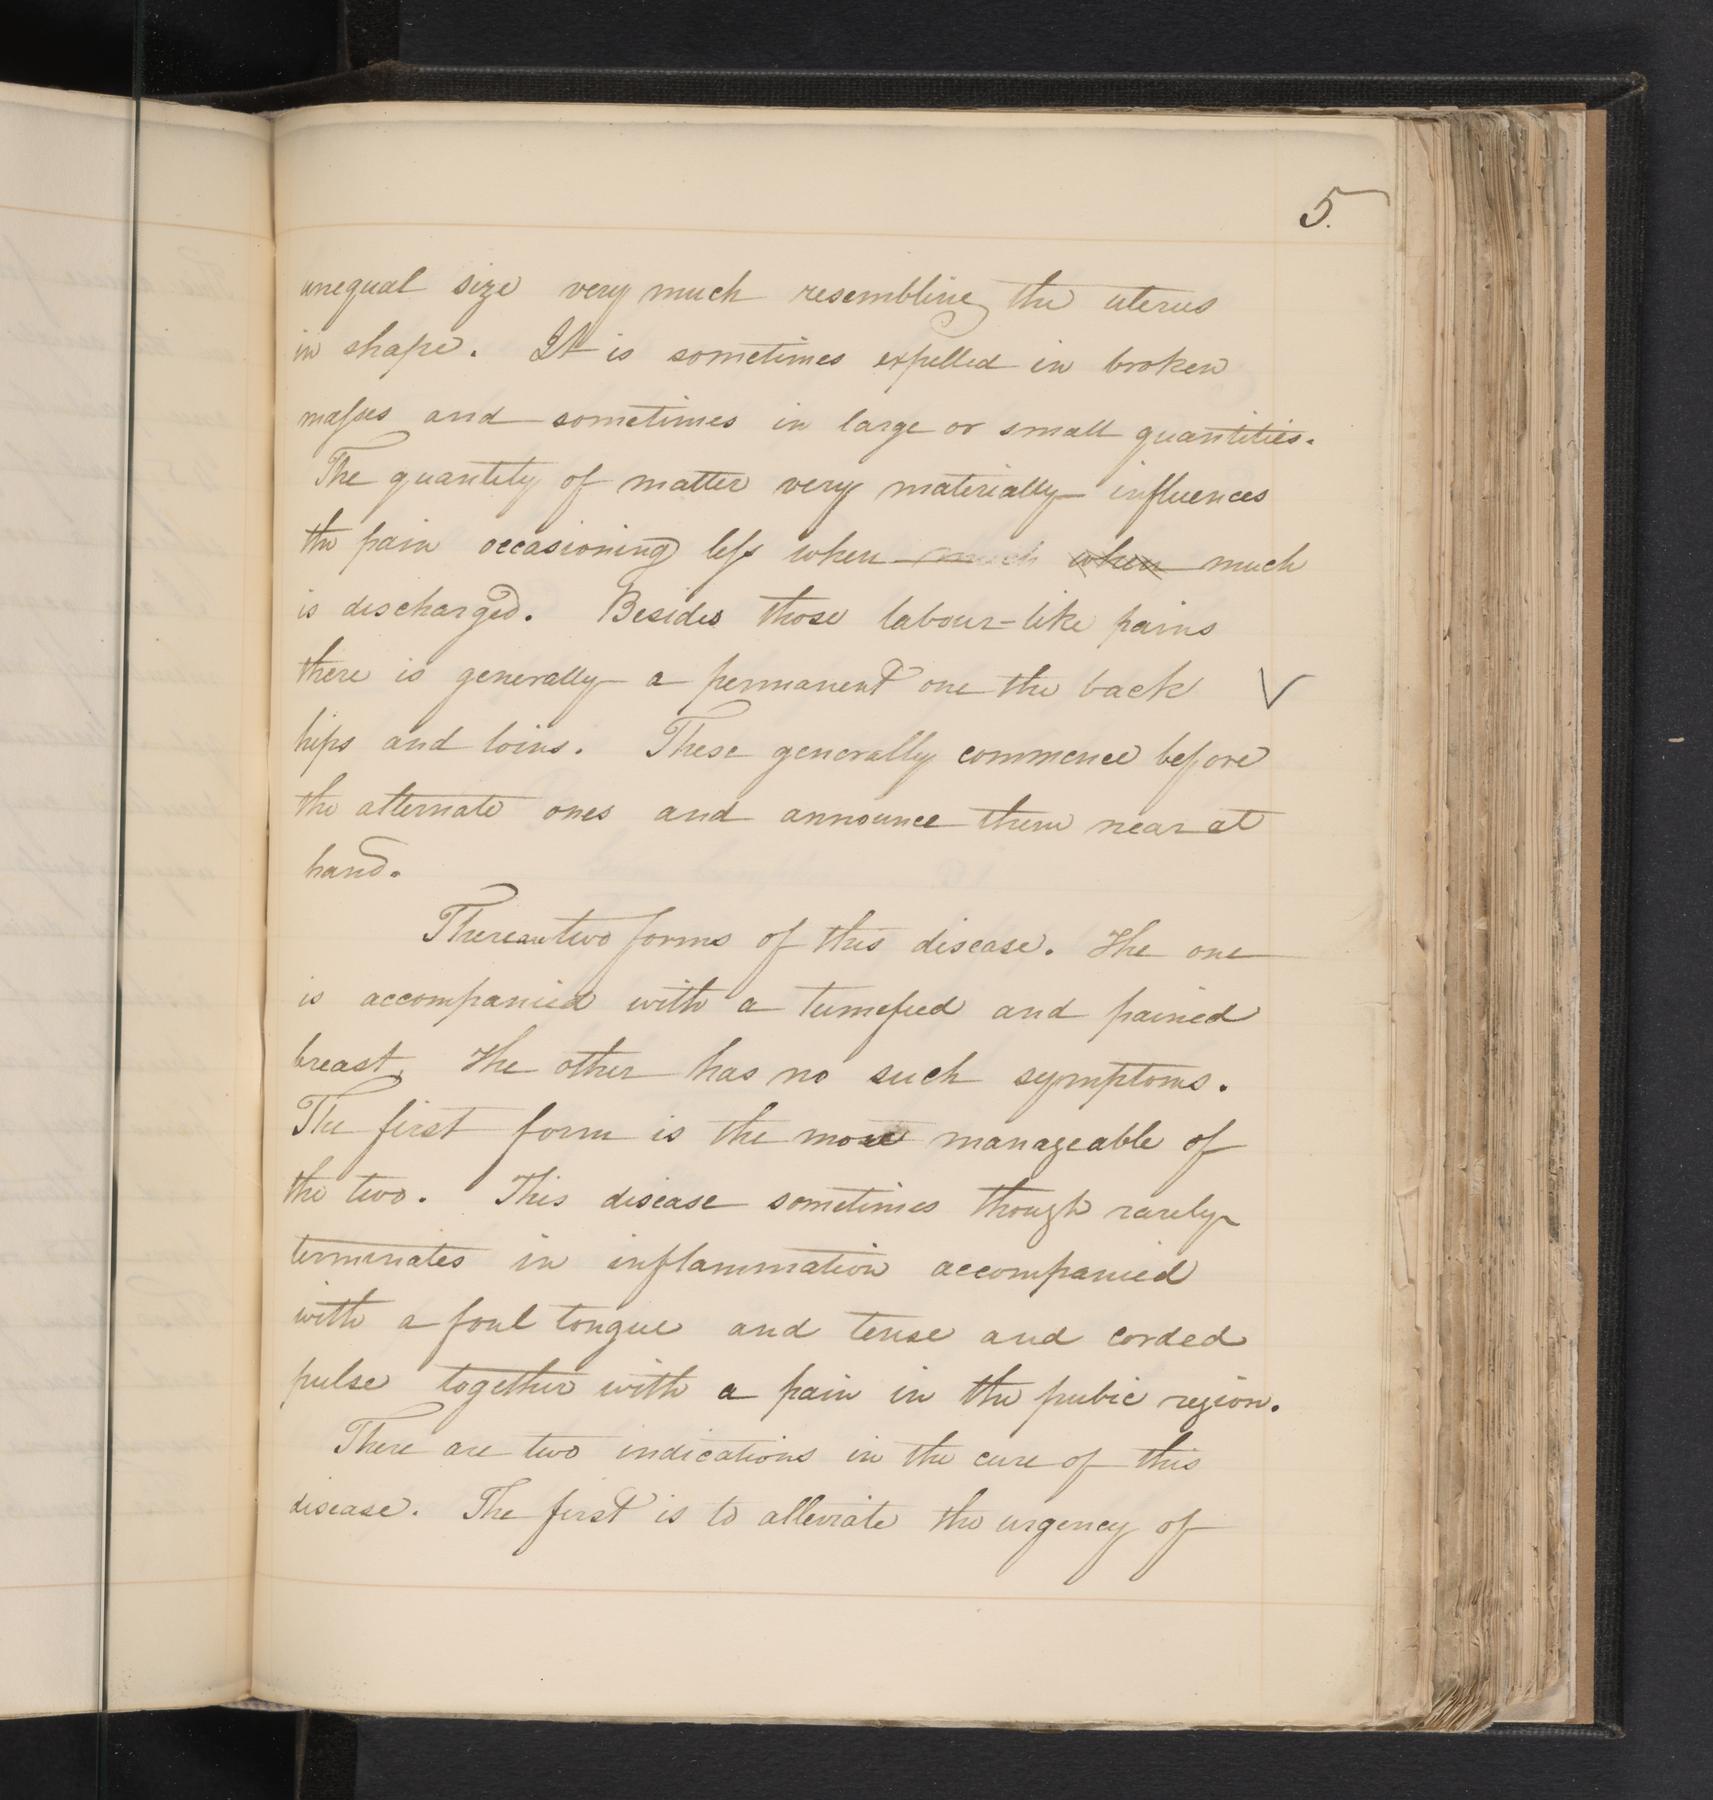 5.
unequal size very much resembling the uterus
in shape. It is sometimes expelled in broken
masses and sometimes in large or small quantities.
The quantity of matter very materially influences
the pain occasioning less when much when much
is discharged. Besides those labour-like pains
there is generally a permanent one the back
hips and loins. These generally commence before
the alternate ones and announce them near at
hand.
There are two forms of this disease. The one
is accompanied with a tumefied and pained
breast. The other has no such symptoms.
The first form is the more manageable of
the two. This disease sometimes though rarely
terminates in inflammation accompanied
with a foul tongue and tense and corded
pulse together with a pain in the pubic region.
There are two indications in the cure of this
disease. The first is to alleviate the urgency of